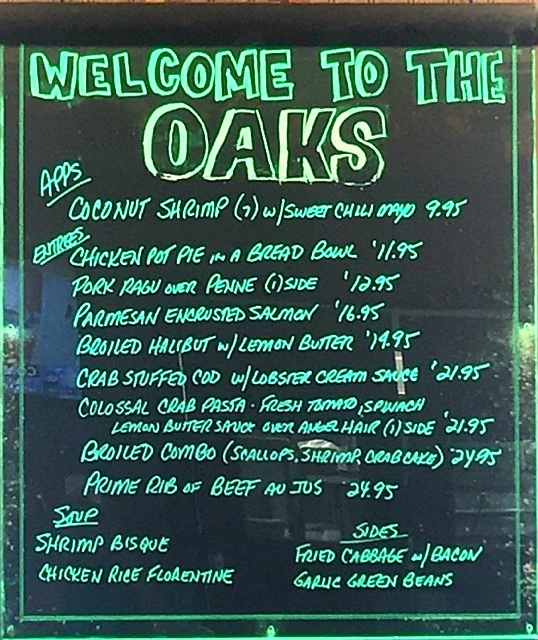 WELCOME TO THE
OAKS
APPS
COCONUT SHRIMP (7) w/SWEET CHILI MAYO 9.95
ENTREES
CHICKEN POT PIE IN A BREAD BOWL '11.95
PORK RAGU OVER PENNE (1) SIDE '12.95
PARMESAN ENCRUSTED SALMON '16.95
BROILED HALIBUT w/LEMON BUTTER '19.95
CRAB STUFFED COD w/LOBSTER CREAM SAUCE '21.95
COLOSSAL CRAB PASTA - FRESH TOMATO, SPINACH
LEMON BUTTER SAUCE OVER ANGEL HAIR (1) SIDE '21.95
BROILED COMBO (SCALLOPS, SHRIMP, CRAB CAKE) 24.95
PRIME RIB OF BEEF AU JUS 24.95
SOUP
SHRIMP BISQUE
CHICKEN RICE FLORENTINE
SIDES
FRIED CABBAGE w/BACON
GARLIC GREEN BEANS